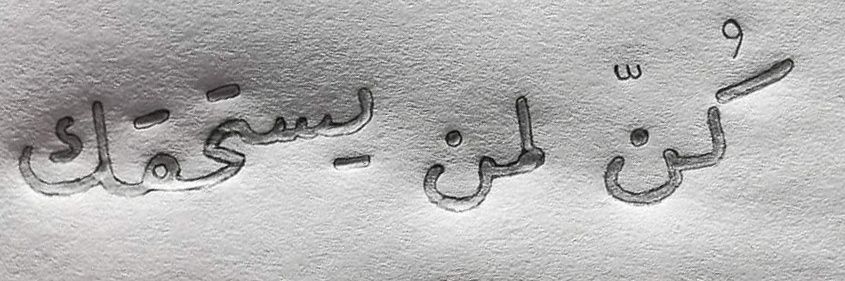 كُنّ لمن يستحقك